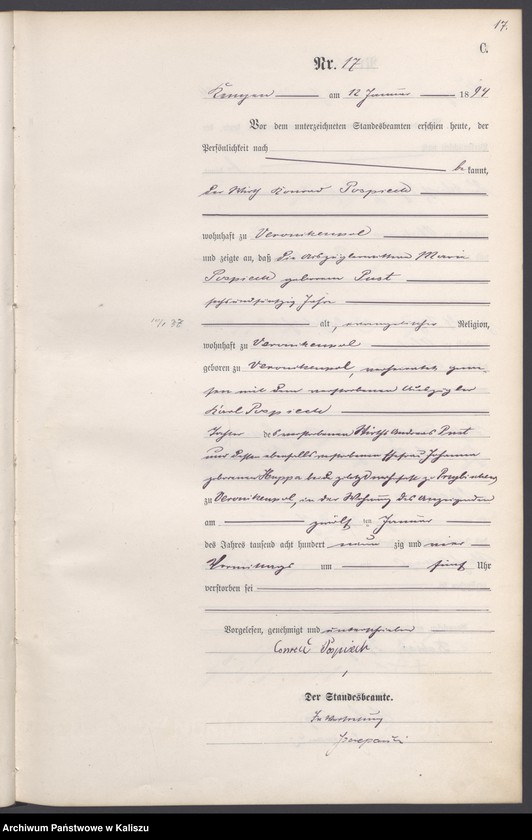 17.
C.
Nr. 17
am 12 Januar 1894
Vor dem unterzeichneten Standesbeamten erschien heute, der
Persönlichkeit nach
be kannt,
der Wirth Konrad Pospiech
wohnhaft zu Veronikenpol
und zeigte an, daß die Auszüglerwittwe Marie
Pospiech geborene Pust
sechsundsiebzig Jahr
alt, evangelischer Religion,
wohnhaft zu Veronikenpol
geboren zu Veronikenpol, verheirathet gewe-
sen mit dem verstorbenen Auszügler
Karl Pospiech
Tochter des verstorbenen Wirths Andreas Pust
und dessen ebenfalls verstorbenen Ehefrau Johanna
geborenen Huppa beide zuletzt wohnhaft zu
zu Veronikenpol, in der Wohnung des Anzeigenden
am zwölf ten Januar
des Jahres tausend acht hundert neun zig und vier
Vormittags um fünf Uhr
verstorben sei
Vorgelesen, genehmigt und unterschrieben
Conrad Pospiech
Der Standesbeamte.
In Vertretung
Archiwum Państwowe w Kaliszu